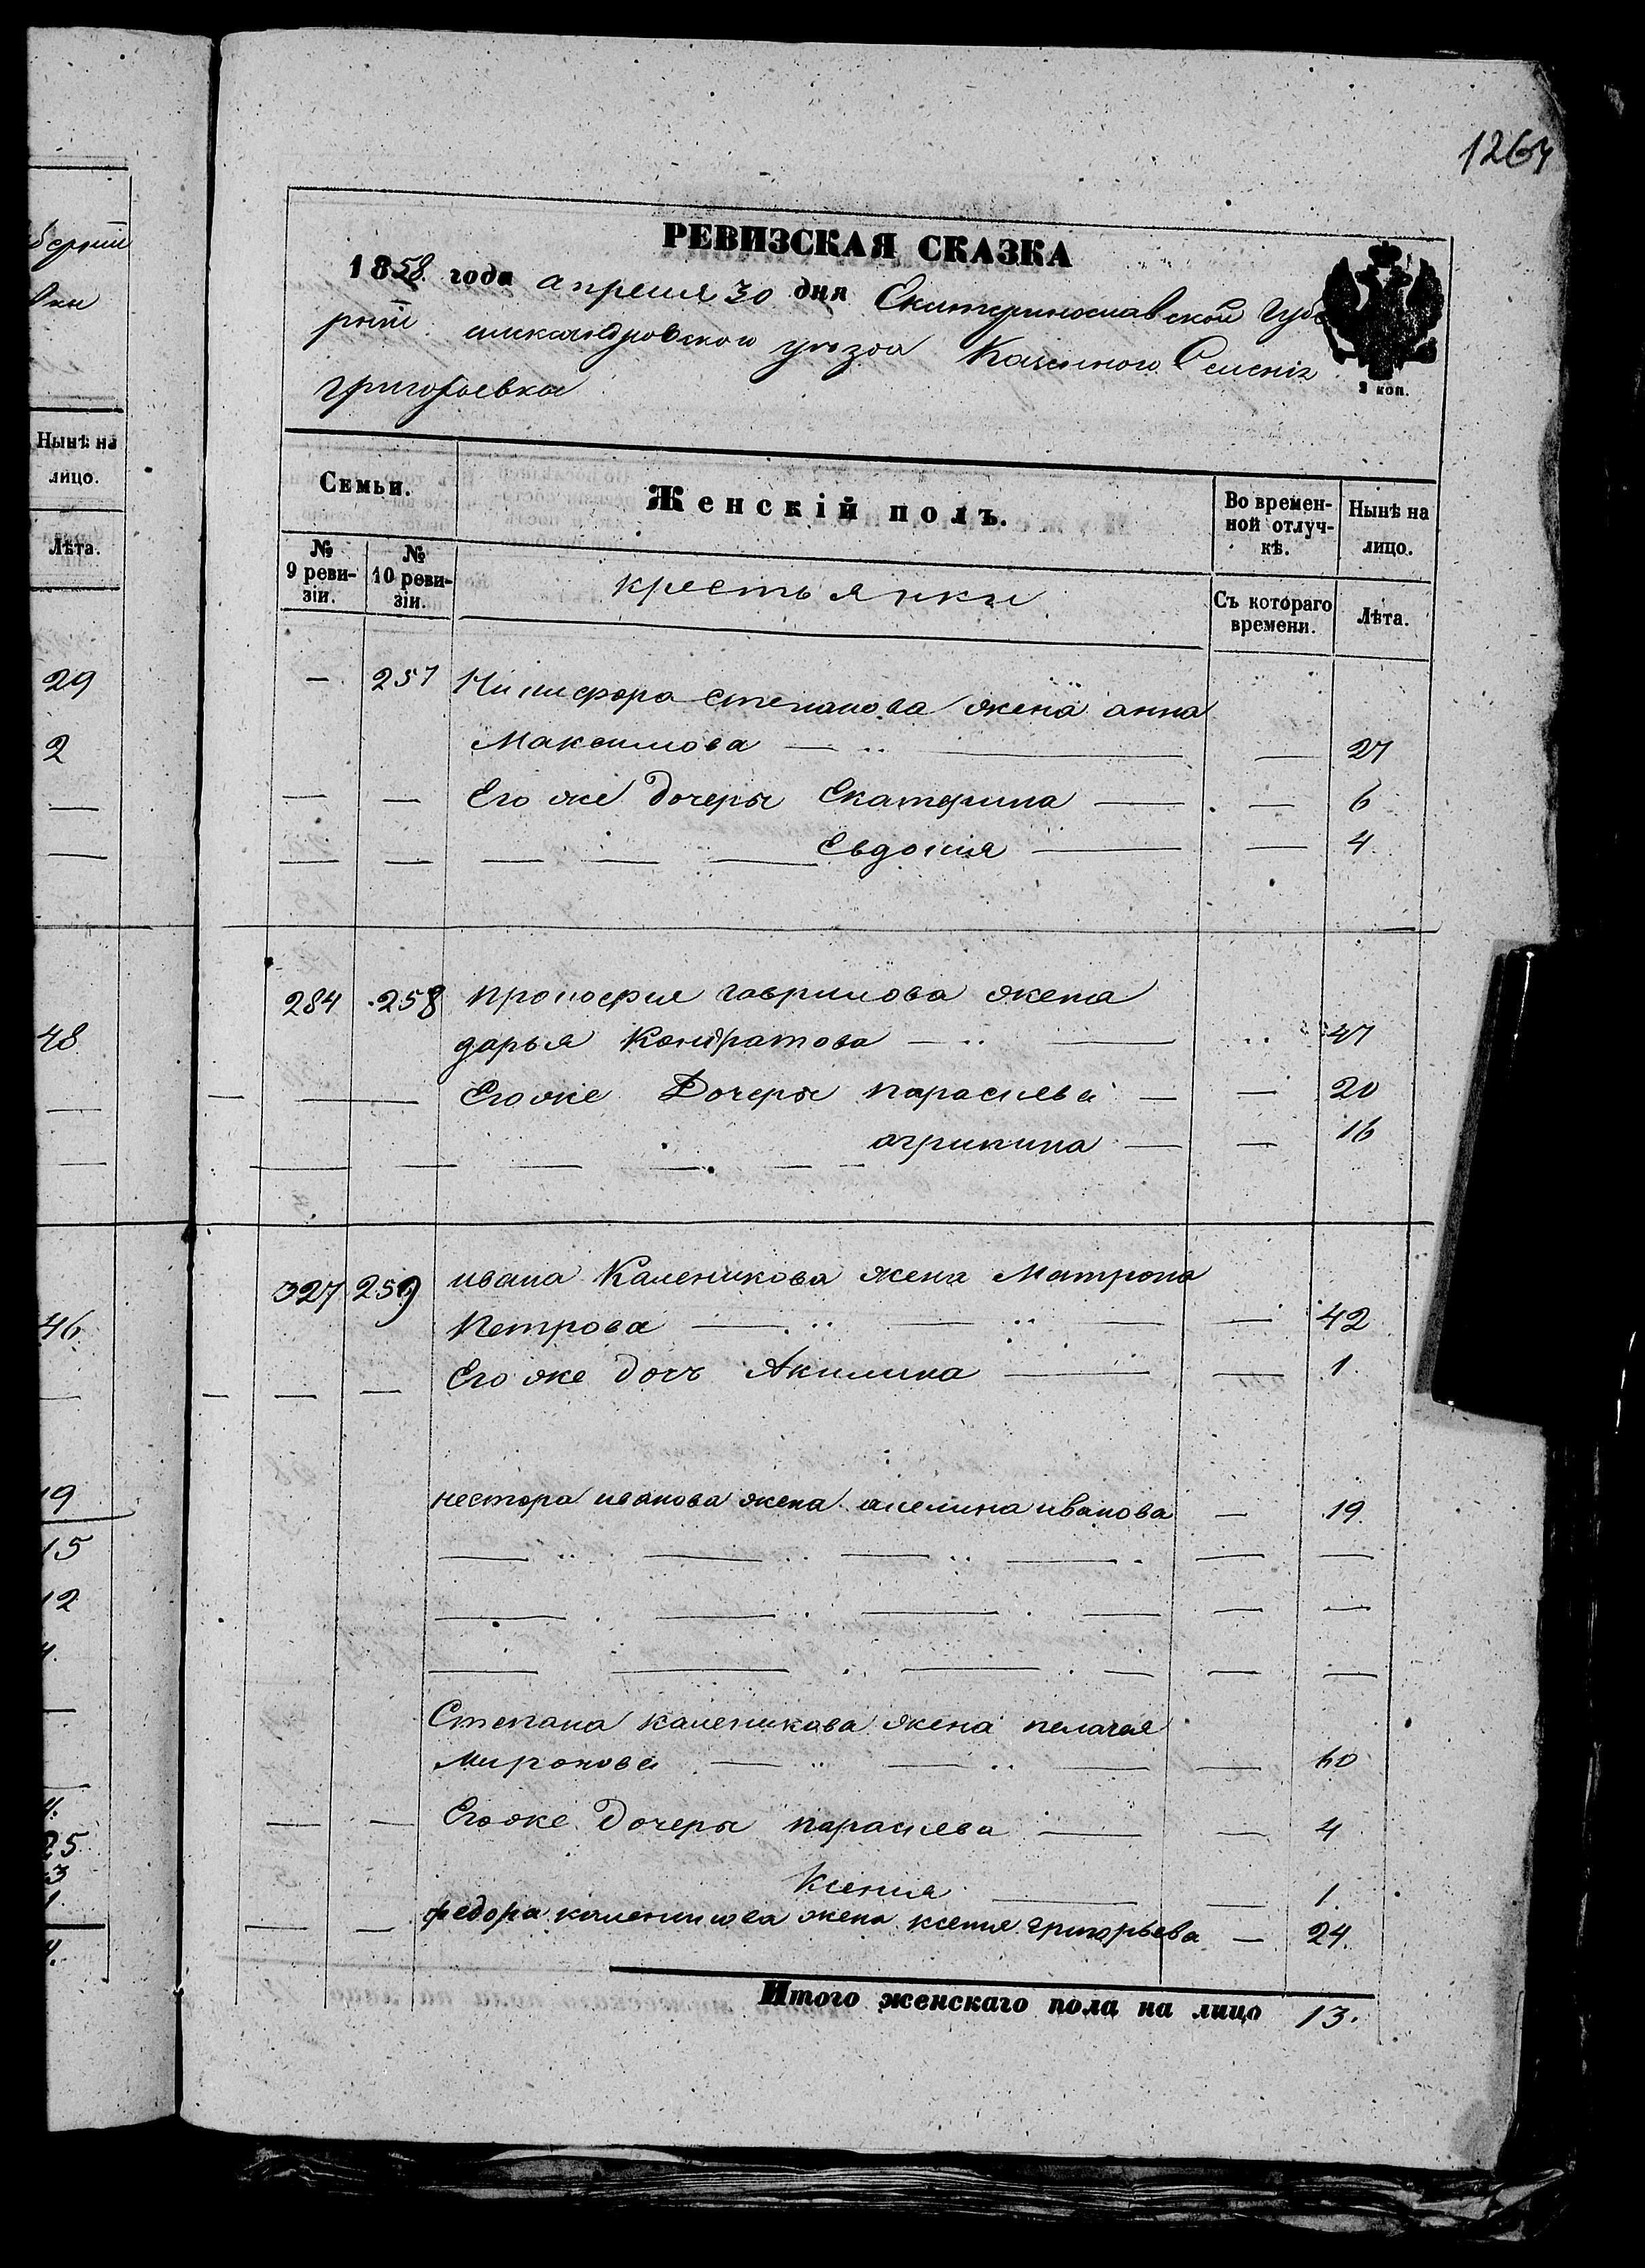 1264
берніи
вки
Нынѣ на
лицо.
Лѣта.
29
2
48
46
19
15
12
4.
4.
25
3
1
4.
РЕВИЗСКАЯ СКАЗКА
1858 года апреля 30 дня Екатеринославской Губе
рніи александровского уезда Казенного Селенія
григорьевка
3 коп.
Семьи.
Женскій полъ.
Во времен-
ной отлуч-
кѣ.
Нынѣ на
лицо.
№
9 реви-
зіи.
№
10 реви-
зіи.
крестьянки
Съ котораго
времени.
Лѣта.
— 257 Никифора Степанова жена анна
Максимова — — — 27
— — Его же дочеры Екатерина — — 6
— — — — — Евдокия — — 4
284 258 прокофия гаврилова жена
дарья Кондратова — — 47
— — Его же Дочеры параскева — — 20
— — — — — — агрипина — — 16
327 259 ивана Каленикова жена Матрона
Петрова — — — — 42
— — — Его же дочъ Акилина — — 1.
нестора иванова жена акилина иванова — 19.
— — — — — —
— — — — — —
— — — — — —
Степана каленикова жена пелагея
Миронова — — — — 60
— — Его же дочеры параскева — — 4
Ксения — — 1.
— — федора каленикова жена ксения григорьева — 24.
Итого женскаго пола на лицо 13.